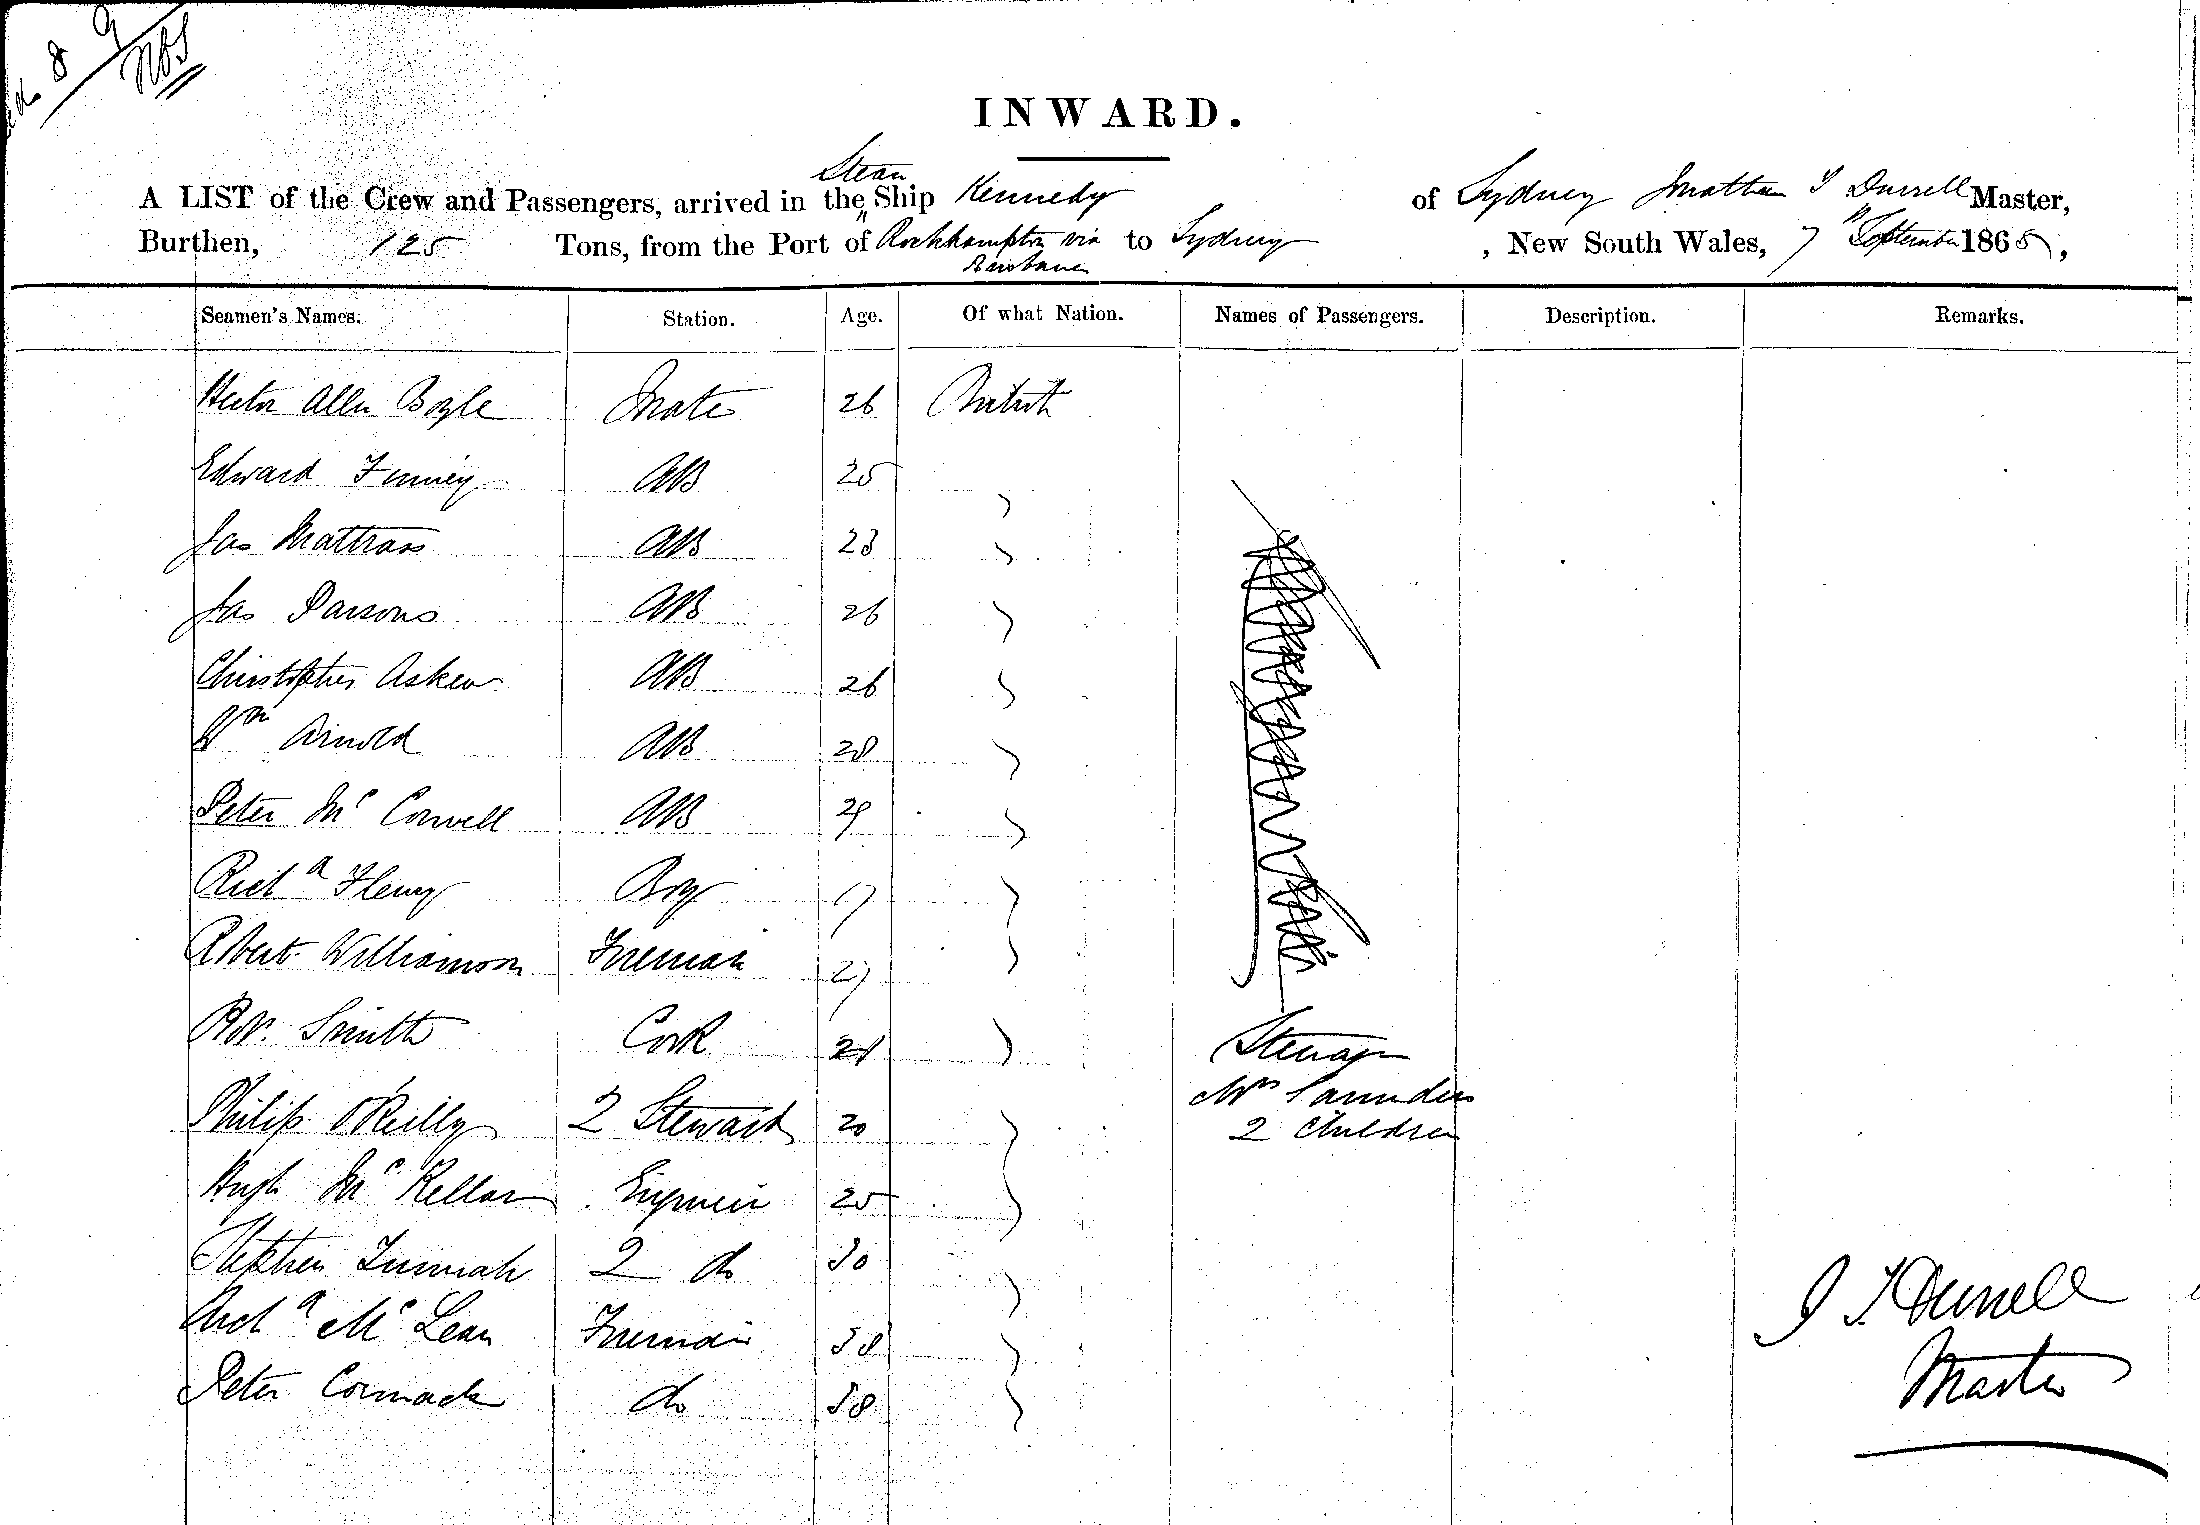 8 9
INWARD.
A LIST of the Crew and Passengers, arrived in the Steam Ship Kennedy of Sydney Jonathan T Durrell Master,
Burthen, 125 Tons, from the Port of Rockhampton via Brisbane to Sydney, New South Wales, 7 September 1865,
Seamen's Names. Station. Age. Of what Nation. Names of Passengers. Description. Remarks.
Hector Allen Boyle Mate 26 British
Edward Finney AB 25 "
Jas Mattrass AB 23 "
Jas Parsons AB 26 "
Christopher Askew AB 26 "
Wm Arnold AB 28 "
Peter Mc Convell AB 29 "
Richd Fleury Boy 17 "
Robert Williamson Fireman 27 "
Robt. Smith Cook 28 " Steerage
Mrs Saunders
Philip O'Reilly 2 Steward 20 " 2 Children
Hugh Mc Kellar Engineer 25 "
Stephen 2 do 30 "
Archd Mc Lean Fireman 38 "
Peter Cormack do 38 "
J T Durrell
Master